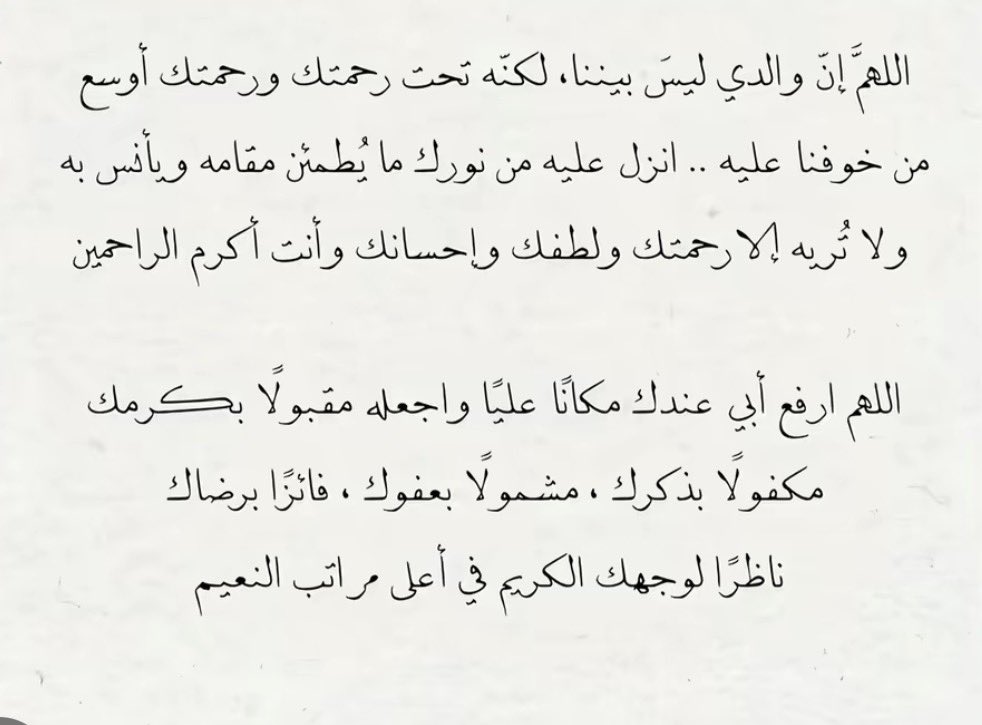 اللهمَّ إنّ والدي ليسَ بيننا، لكنّه تحت رحمتك ورحمتك أوسع
من خوفنا عليه .. انزل عليه من نورك ما يُطمئن مقامه ويأنس به
ولا تُريه إلا رحمتك ولطفك وإحسانك وأنت أكرم الراحمين
اللهم ارفع أبي عندك مكانًا عليًا واجعله مقبولًا بكرمك
مكفولًا بذكرك ، مشمولًا بعفوك ، فائزًا برضاك
ناظرًا لوجهك الكريم في أعلى مراتب النعيم